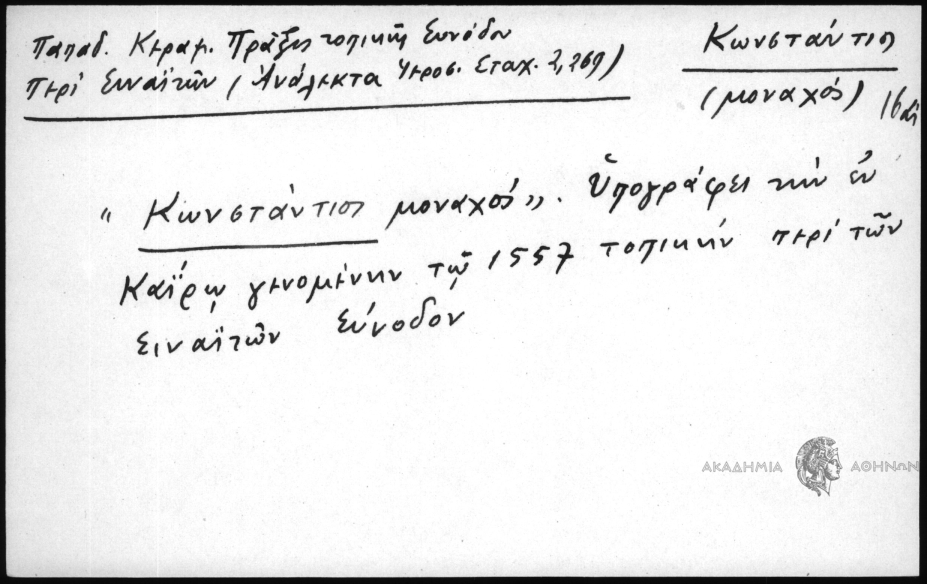 Παπαδ. Κεραμ. Πρᾶξις τοπικῆς Συνόδου
περὶ Σιναϊτῶν (Ἀνάλεκτα Ἱεροσ. Σταχ. 2, 269)
Κωνστάντιος
(μοναχός) 16 αἰ
" Κωνστάντιος μοναχός". Ὑπογράφει τὴν ἐν
Καΐρῳ γενομένην τῷ 1557 τοπικὴν περὶ τῶν
Σιναϊτῶν Σύνοδον
ΑΚΑΔΗΜΙΑ ΑΘΗΝΩΝ